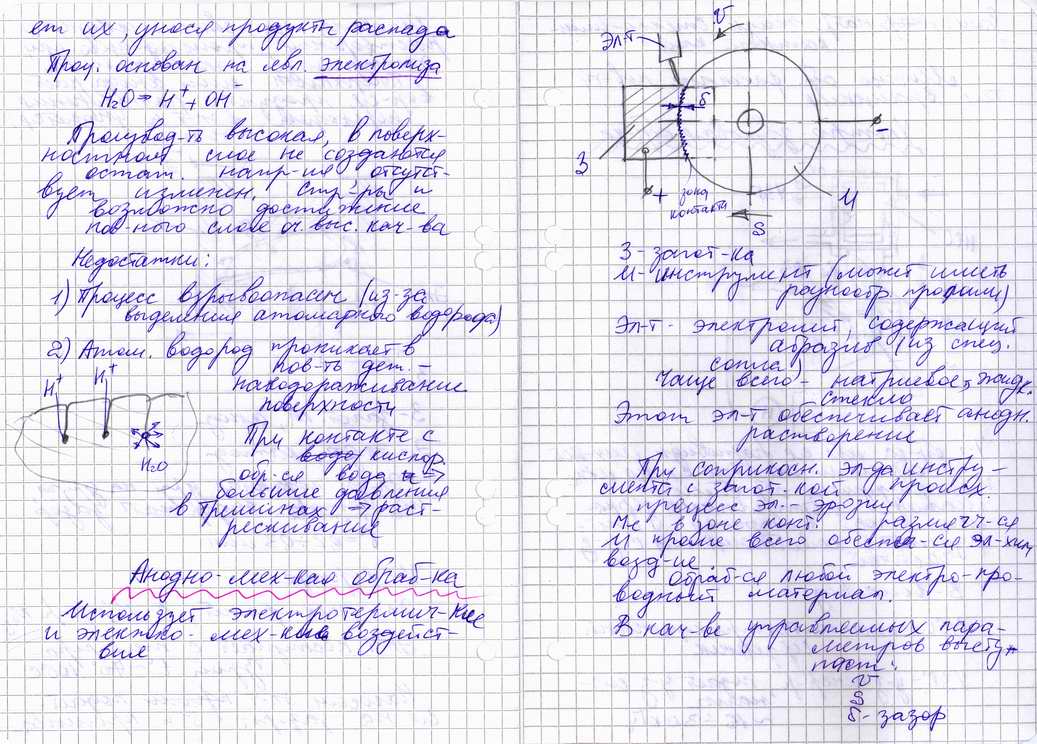 ет их, унося продукты распада
Проц. основан на явл. электролиза
H₂O → H⁺ + OH⁻
Производ-ть высокая, в поверх-
ностном слое не создаются
остат. напр-ия отсутст-
вует изменен. стр-ры и
возможно достижение
пов-ного слоя оч. выс. кач-ва
Недостатки:
1) Процесс взрывоопасен (из-за
выделения атомарного водорода)
2) Атом. водород проникает в
пов-ть дет. –
наводораживание
поверхности
H⁺ H⁺
H₂O
При контакте с
кислор.
обр-ся вода →
большие давления
в трещинах → раст-
рескивание
Анодно-мех-кая обраб-ка
Использует электротермич-кие
и электро-мех-кие воздейст-
вие
v
Эл-т
δ
–
З
+
зона
контакта
И
S
З - загот-ка
И - инструмент (может иметь
разнообр. профили)
Эл-т - электролит, содержащий
абразив (из спец.
сопла)
Чаще всего – натриевое, жидк.
стекло
Этот эл-т обеспечивает анодн.
растворение
При соприкосн. эл-да инстру-
мента с загот-кой происх.
процесс эл. - эрозии
Ме в зоне конт. размягч-ся
И кроме всего обеспеч-ся эл-хим
возд-ие.
Обраб-ся любой электро-про-
водный материал.
В кач-ве управляемых пара-
метров высту-
пают:
v
S
δ - зазор